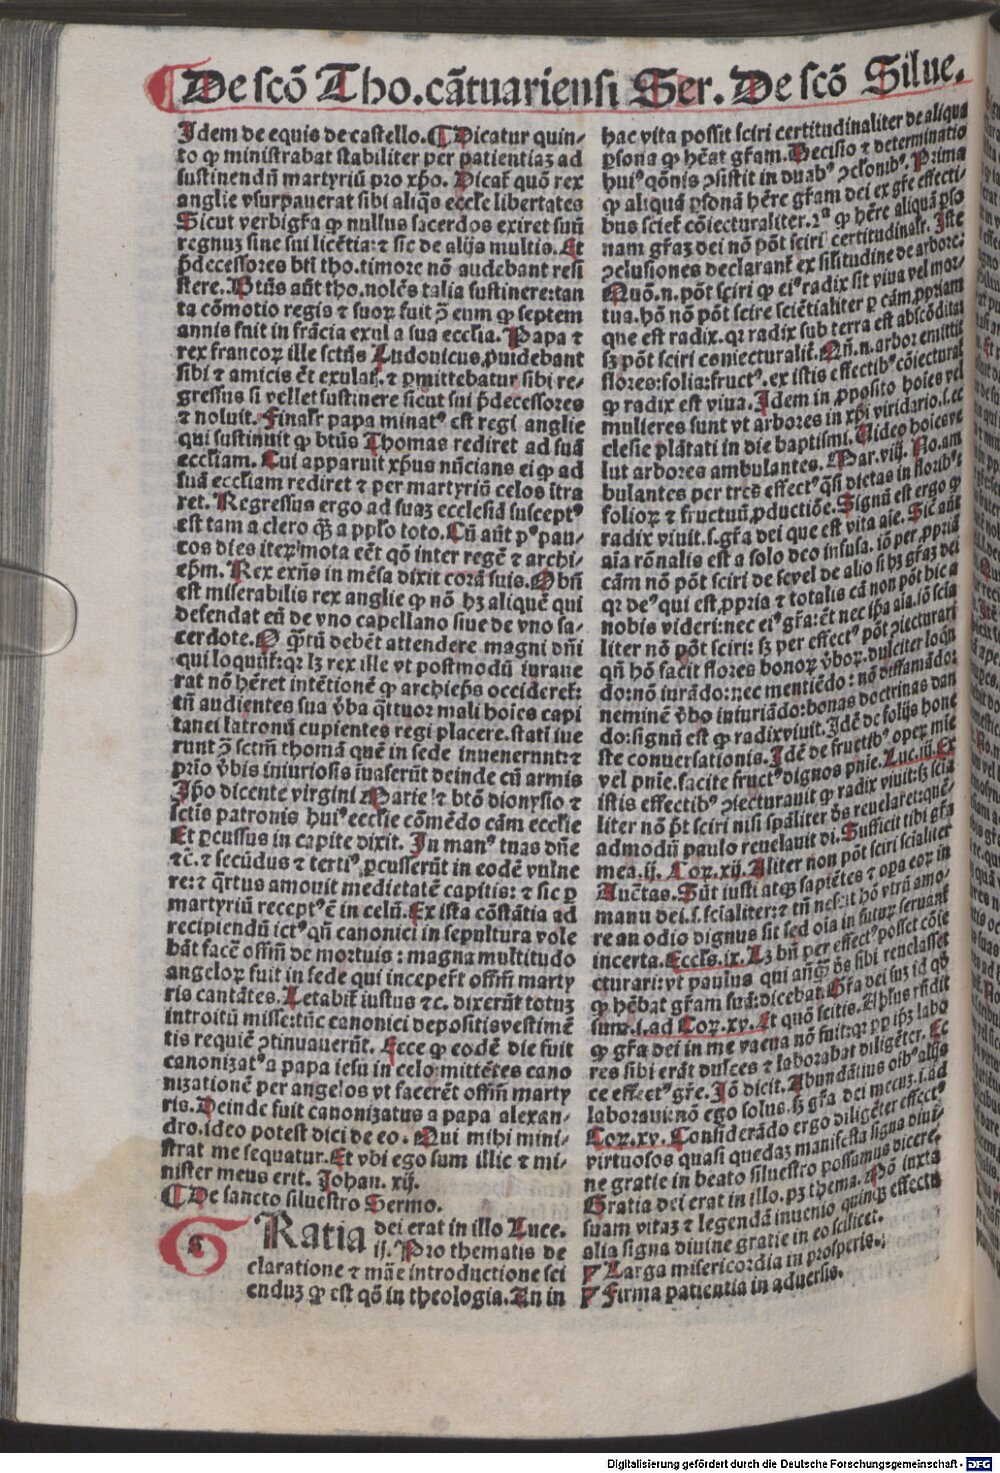 ¶ De scō Tho. cātuariensi Ser. De scō Silue.
Idem de equis de castello. ¶ Dicatur quin⸗
to ꝙ ministrabat stabiliter per patientiaȝ ad
sustinendū martyriū pro xp̄o. Dicat̄ quō rex
anglie vsurpauerat sibi aliq̄s eccl̄e libertates
Sicut verbigr̄a ꝙ nullus sacerdos exiret suū
regnuȝ sine sui licētia: ⁊ sic de alijs multis. Et
p̄decessores bt̄i tho. timore nō audebant resi
stere. Btūs aūt tho. nolēs talia sustinere: tan
ta cōmotio regis ⁊ suoꝝ fuit ↄ̄ eum ꝙ septem
annis fuit in frācia exul a sua eccl̄ia. Papa ⁊
rex francoꝝ ille sctūs Ludouicus ꝓuidebant
sibi ⁊ amicis ēt exulat̄. ⁊ ꝓmittebatur sibi re⸗
gressus si vellet sustinere sicut sui p̄decessores
⁊ noluit. Finalr̄ papa minatꝰ est regi anglie
qui sustinuit ꝙ btūs Thomas rediret ad suā
eccl̄iam. Cui apparuit xp̄us nūcians ei ꝙ ad
suā eccl̄iam rediret ⁊ per martyriū celos ītra
ret. Regressus ergo ad suaȝ ecclesiā susceptꝰ
est tam a clero q̄ȝ a pp̄lo toto. Cū aūt pꝰ pau⸗
cos dies iteꝝ mota eēt qō inter regē ⁊ archi⸗
ep̄m. Rex exn̄s in mēsa dixit corā suis. O bn̄
est miserabilis rex anglie ꝙ nō hȝ aliquē qui
defendat eū de vno capellano siue de vno sa⸗
cerdote. O q̄ꝫtū debēt attendere magni dn̄i
qui loquūt̄: qꝛ lȝ rex ille vt postmodū iuraue
rat nō hēret intētionē ꝙ archiep̄s occideret̄:
tn̄ audientes sua v̄ba q̄ttuor mali hoīes capi
tanei latronū cupientes regi placere. stati iue
runt ↄ̄ sctm̄ thomā quē in sede inuenerunt: ⁊
prīo v̄bis iniuriosis īuaserūt deinde cū armis
Ip̄o dicente virgini Marie ⁊ btō dionysio ⁊
sctīs patronis huiꝰ ecclīe cōmēdo cām ecclie
Et ꝑcussus in capite dixit. In manꝰ tuas dn̄e
⁊c̄. ⁊ secūdus ⁊ tertiꝰ ꝑcusserūt in eodē vulne
re: ⁊ q̄rtus amouit medietatē capitis: ⁊ sic ꝑ
martyriū receptꝰ ē in celū. Ex ista cōstātia ad
recipiendū ictꝰ qn̄ canonici in sepultura vole
bāt facē offm̄ de mortuis: magna multitudo
angeloꝝ fuit in sede qui inceper̄t offm̄ marty
ris cantātes. Letabit̄ iustus ⁊c. dixerūt totuȝ
introitū misse: tūc canonici depositis vestimē
tis requiē ↄtinuauerūt. Ecce ꝙ eodē die fuit
canonizatꝰ a papa iesu in celo: mittētes cano
nizationē per angelos vt facerēt offm̄ marty
ris. Deinde fuit canonizatus a papa alexan⸗
dro. ideo potest dici de eo. Qui mihi mini⸗
strat me sequatur. Et vbi ego sum illic ⁊ mi⸗
nister meus erit. Johan. xij.
¶ De sancto siluestro Sermo.
GRatia dei erat in illo Luce.
ij. Pro thematis de
claratione ⁊ māe introductione sci
enduȝ ꝙ est qō in theologia. An in
hac vita possit sciri certitudinaliter de aliqua
ꝑsona ꝙ hēat gr̄am. Decisio ⁊ determinatio
huiꝰ qōnis ↄsistit in duabꝰ ↄclōnibꝰ. Prima
ꝙ aliquā ꝑsonā hēre gr̄am dei ex gr̄e effecti⸗
bus sciet̄ cōiecturaliter. 2ᵃ ꝙ hēre aliquā ꝑso
nam gr̄aȝ dei nō pōt sciri certitudinalr̄. Iste
ↄclusiones declarant̄ ex silitudine de arbore:
Quō. n. pōt sciri ꝙ eiꝰ radix sit viua vel mor⸗
tua. hō nō pōt scire sciētialiter ꝑ cām ꝓpriam
que est radix. qꝛ radix sub terra est abscōdita:
sȝ pōt sciri coniecturalit̄. Qn̄. n. arbor emittit
flores: folia: fructꝰ. ex istis effectibꝰ cōiecturat̄
ꝙ radix est viua. Idem in ꝓposito hoīes vel
mulieres sunt vt arbores in xp̄i viridario. s. ec
clesie plātati in die baptismi. Video hoīes ve
lut arbores ambulantes. Mar. viij. No. am
bulantes per tres effectꝰ q̄si dictas in floribꝰ ⁊
folioꝝ ⁊ fructuū ꝓductiōe. Signū est ergo ꝙ
radix viuit. s. gr̄a dei que est vita aīe. Sic aūt
aīa rōnalis est a solo deo infusa. iō per ꝓpriā
cām nō pōt sciri de se vel de alio si hȝ gr̄aȝ dei
qꝛ deꝰ qui est ꝓpria ⁊ totalis cā non pōt hic a
nobis videri: nec eiꝰ gr̄a: ēt nec ip̄a aīa. iō scia
liter nō pōt sciri: sȝ per effectꝰ pōt ↄiecturari
qn̄ hō facit flores bonoꝝ v̄boꝝ. dulciter loqn̄
do: nō iurādo: nec mentiēdo: nō diffamādo:
neminē v̄bo iniuriādo: bonas doctrinas dan
do: signū est ꝙ radix viuit. Idē de folijs hone
ste conuersationis. Idē de fructibꝰ opeꝝ mie
vel pn̄ie. facite fructꝰ dignos pn̄ie. Luc. iij. Ex
istis effectibꝰ ↄiecturauit ꝙ radix viuit: sȝ scia
liter nō pōt sciri nisi sp̄aliter ds̄ reuelaret: quē
admodū paulo reuelauit di. Sufficit tibi gr̄a
mea. ij. Coꝝ. xij. Aliter non pōt sciri scialiter
Auctas. Sūt iusti atqȝ sapiētes ⁊ opa eoꝝ in
manu dei. s. scialiter: ⁊ tn̄ nescit hō vtrū amo⸗
re an odio dignus sit sed oīa in futuꝝ seruant̄
incerta. Eccls. ix. Lȝ bn̄ per effectꝰ posset cōie
cturari: vt paulus qui anq̄ȝ ds̄ sibi reuelasset
ꝙ hēbat gr̄am suā: dicebat. Gr̄a dei suȝ id qd̄
sum. i. ad Coꝝ. xv. Et quō scitis. Ap̄lus rn̄dit
ꝙ gr̄a dei in me vacua nō fuit: qꝛ ꝓ ip̄ȝ labo
res sibi erāt dulces ⁊ laborabat diligēter. Ec
ce effectꝰ gr̄e. Iō dicit. Abundātius oībꝰ alijs
laboraui: nō ego solus. sȝ gr̄a dei mecuȝ. i. ad
Coꝝ. xv. Considerādo ergo diligēter effectꝰ
virtuosos quasi quedaȝ manifesta signa diui⸗
ne gratie in beato siluestro possumus dicere.
Gratia dei erat in illo. pȝ thema. Nō iuxta
suam vitaȝ ⁊ legendā inuenio quinqȝ effectu
alia signa diuine gratie in eo scilicet.
Larga misericordia in prosperis.
Firma patientia in aduersis.
Digitalisierung gefördert durch die Deutsche Forschungsgemeinschaft - DFG